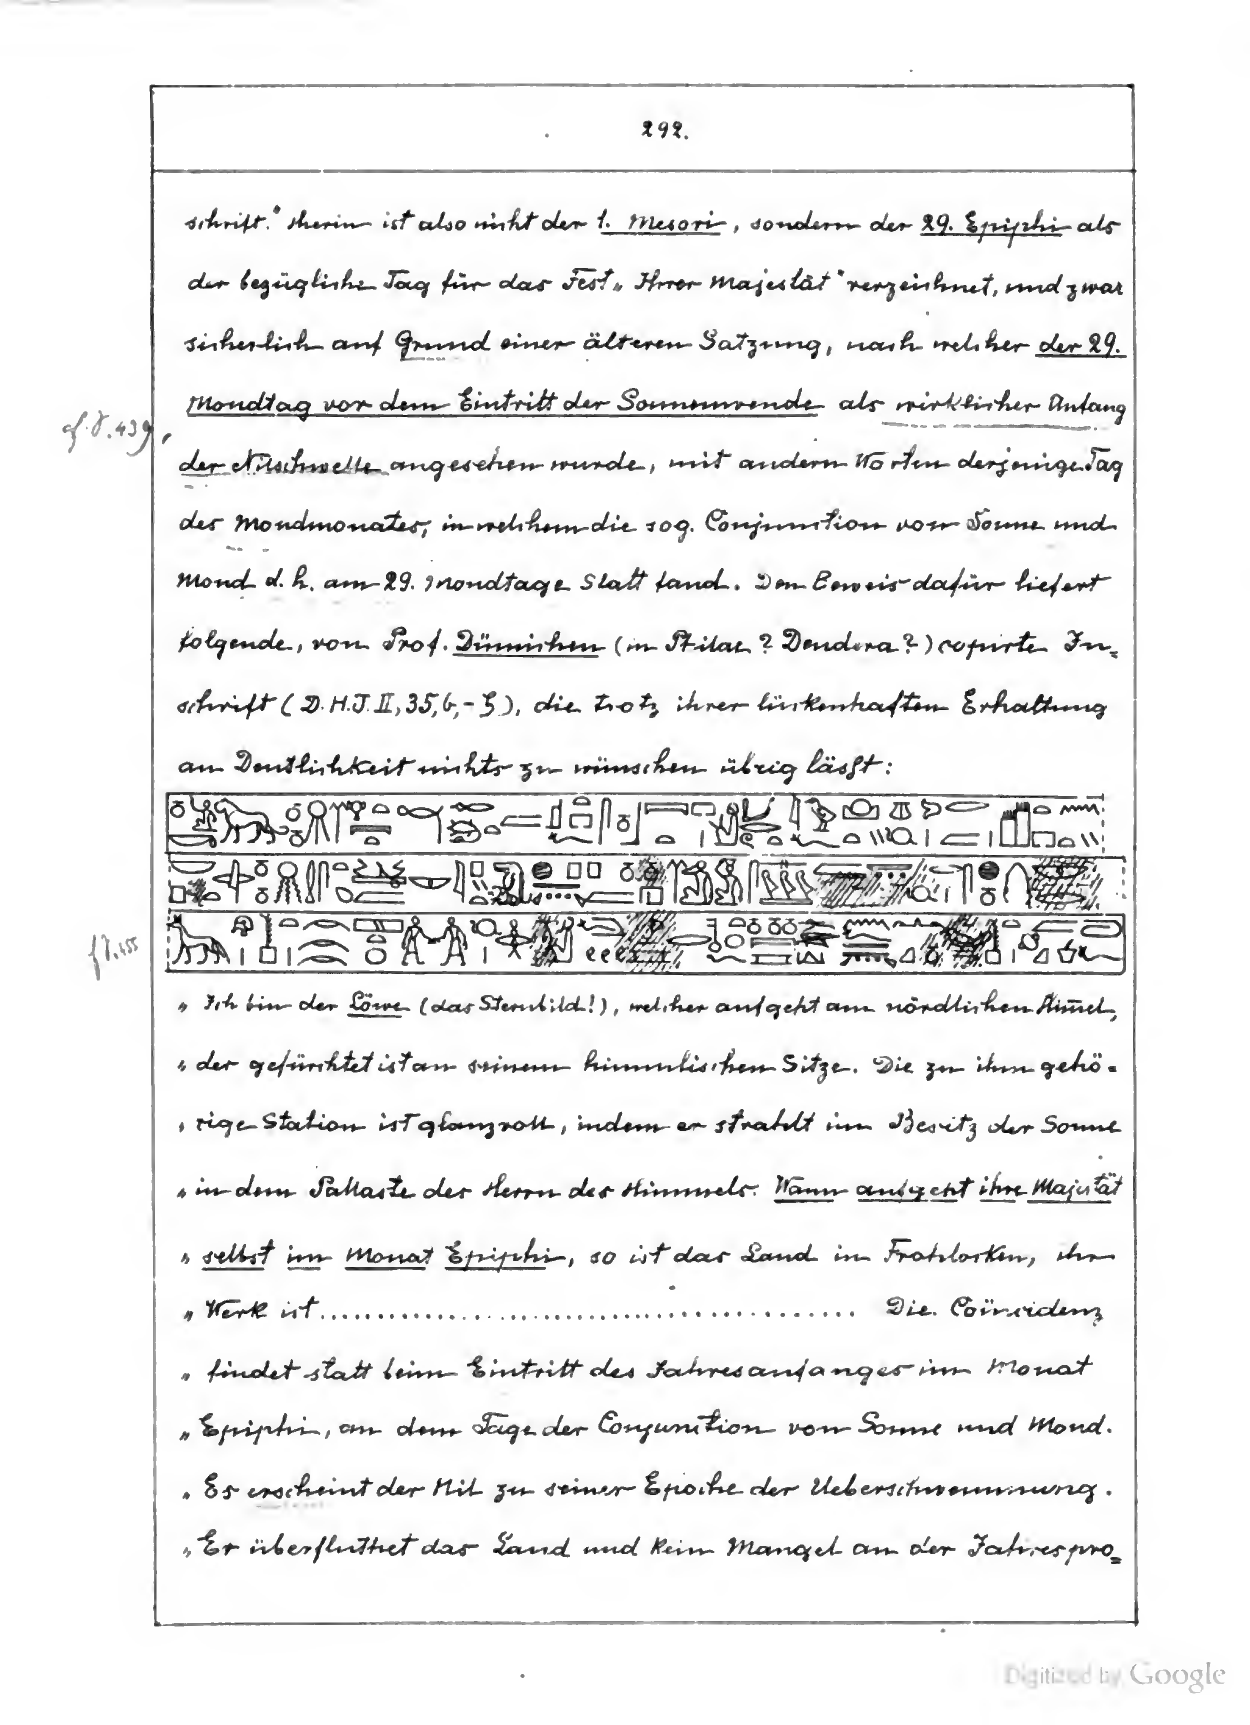 292.
schrift." Herin ist also nicht der 1. Mesori, sondern der 29. Epiphi als
der bezügliche Tag für das Fest „Ihrer Majestät" verzeichnet, und zwar
sicherlich auf Grund einer älteren Satzung, nach welcher der 29.
Mondtag vor dem Eintritt der Sonnenwende als wirklicher Anfang
cf. S. 439,
der Nilschwelle angesehen wurde, mit andern Worten derjenige Tag
des Mondmonates, in welchem die sog. Conjunction von Sonne und
Mond d. h. am 29. Mondtage Statt fand. Den Beweis dafür liefert
folgende, von Prof. Dümichen (in Philae? Dendera?) copirte In-
schrift (D. H. J. II, 35, 6, - ), die trotz ihrer lückenhaften Erhaltung
an Deutlichkeit nichts zu wünschen übrig lässt:
f S. 455
„ Ich bin der Löwe (das Sternbild!), welcher aufgeht am nördlichen Him̄el,
„ der gefürchtet ist an seinem himmlischen Sitze. Die zu ihm gehö-
„ rige Station ist glanzvoll, indem er strahlt im Besitz der Sonne
„ in dem Pallaste des Herrn des Himmels. Wann aufgeht ihre Majestät
„ selbst im Monat Epiphi, so ist das Land in Frohlocken, ihr
„ Werk ist.............................................. Die Coïncidenz
„ findet statt beim Eintritt des Jahresanfanges im Monat
„ Epiphi, an dem Tage der Conjunction von Sonne und Mond.
„ Es erscheint der Nil zu seiner Epoche der Ueberschwemmung.
„ Er überfluthet das Land und kein Mangel an der Jahrespro-
Digitized by Google